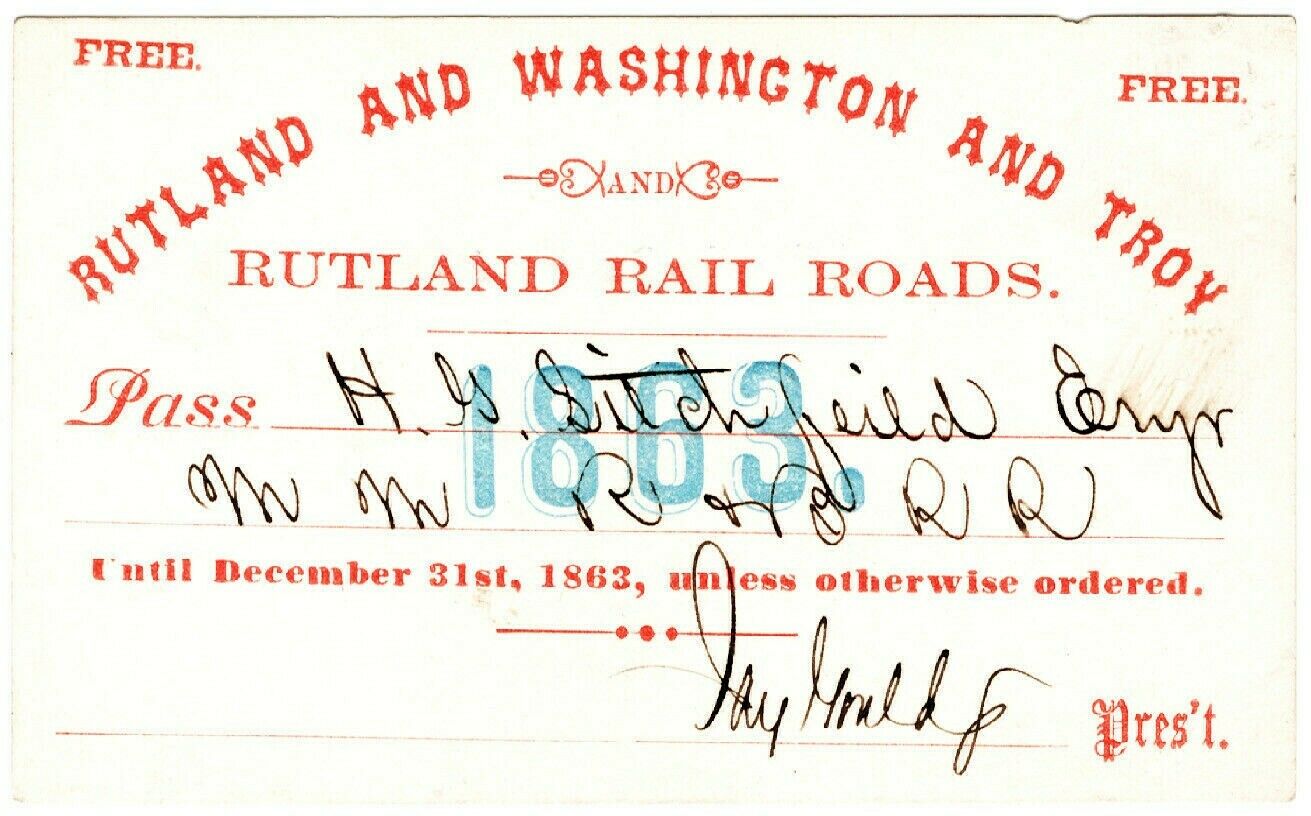 FREE.
FREE.
RUTLAND AND WASHINGTON AND TROY
AND
RUTLAND RAIL ROADS.
1863.
Pass H. G. Litchfeild Engr
M M R & B R R
Until December 31st, 1863, unless otherwise ordered.
Jay Gould
Pres't.